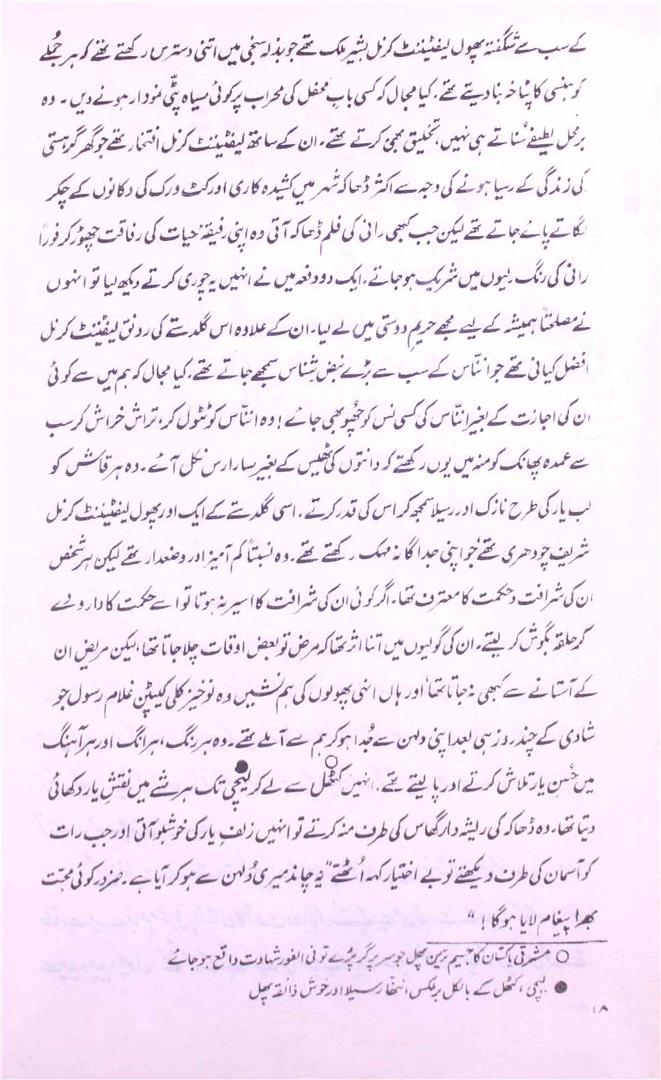 کے سب سے شگفتہ پھول لیفٹیننٹ کرنل بشیر ملک تھے جو بذلہ سنجی میں اتنی دسترس رکھتے تھے کہ ہر جُملے
کو ہنسی کا پٹاخہ بنا دیتے تھے، کیا مجال کہ کسی بابِ محفل کی محراب پر کوئی سیاہ پٹّی نمودار ہونے دیں ۔ وہ
برمحل لطیفے سُناتے ہی نہیں، تخلیق بھی کرتے تھے۔ ان کے ساتھ لیفٹیننٹ کرنل افتخار تھے جو گھر گرہستی
کی زندگی کے رسیا ہونے کی وجہ سے اکثر ڈھاکہ شہر میں کشیدہ کاری اور کٹ ورک کی دکانوں کے چکر
لگاتے پائے جاتے تھے لیکن جب کبھی رانی کی فلم ڈھاکہ آتی وہ اپنی رفیقۂ حیات کی رفاقت چھوڑ کر فوراً
رانی کی رنگ رلیوں میں شریک ہو جاتے، ایک دو دفعہ میں نے انہیں یہ چوری کرتے دیکھ لیا تو انہوں
نے مصلحتاً ہمیشہ کے لیے مجھے حریمِ دوستی میں لے لیا۔ ان کے علاوہ اس گلدستے کی رونق لیفٹیننٹ کرنل
افضل کیانی تھے جو انناس کے سب سے بڑے نبض شناس سمجھے جاتے تھے، کیا مجال کہ ہم میں سے کوئی
ان کی اجازت کے بغیر انناس کی کسی نس کو چھُو بھی جائے! وہ انناس کو ٹٹول کر، تراش خراش کر سب
سے عمدہ پھانک کو منہ میں یوں رکھتے کہ دانتوں کی ٹھیس کے بغیر سارا رس نکل آئے ۔ وہ ہر قاش کو
لب یار کی طرح نازک اور رسیلا سمجھ کر اس کی قدر کرتے ۔ اسی گلدستے کے ایک اور پھول لیفٹیننٹ کرنل
شریف چودھری تھے جو اپنی جداگانہ مہک رکھتے تھے ۔ وہ نسبتاً کم آمیز اور وضعدار تھے لیکن ہر شخص
ان کی شرافت و حکمت کا معترف تھا۔ اگر کوئی ان کی شرافت کا اسیر نہ ہوتا تو اسے حکمت کا دارو دے
کر حلقہ بگوش کر لیتے ۔ ان کی گولیوں میں اتنا اثر تھا کہ مرض تو بعض اوقات چلا جاتا تھا، لیکن مریض ان
کے آستانے سے کبھی نہ جاتا تھا اور ہاں انہی پھولوں کی ہم نشیں وہ نوخیز کلی کیپٹن غلام رسول جو
شادی کے چند روز ہی بعد اپنی دلہن سے جُدا ہو کر ہم سے آ ملے تھے۔ وہ ہر رنگ، ہر انگ اور ہر آہنگ
میں حُسنِ یار تلاش کرتے اور پا لیتے تھے ۔ انہیں کٹھل○ سے لے کر لیچی● تک ہر شے میں نقش یار دکھائی
دیتا تھا، وہ ڈھاکہ کی ریشہ دار گھاس کی طرف منہ کرتے تو انہیں زلفِ یار کی خوشبو آتی اور جب رات
کو آسمان کی طرف دیکھتے تو بے اختیار کہہ اُٹھتے "یہ چاند میری دُلہن سے ہو کر آیا ہے ۔ ضرور کوئی محبّت
بھرا پیغام لایا ہو گا !"
○ مشرقی پاکستان کا جسیم ترین پھل جو سر پر گر پڑے تو فی الفور شہادت واقع ہو جائے
● لیچی ، کٹھل کے بالکل برعکس، ننھا رسیلا اور خوش ذائقہ پھل
۱۸